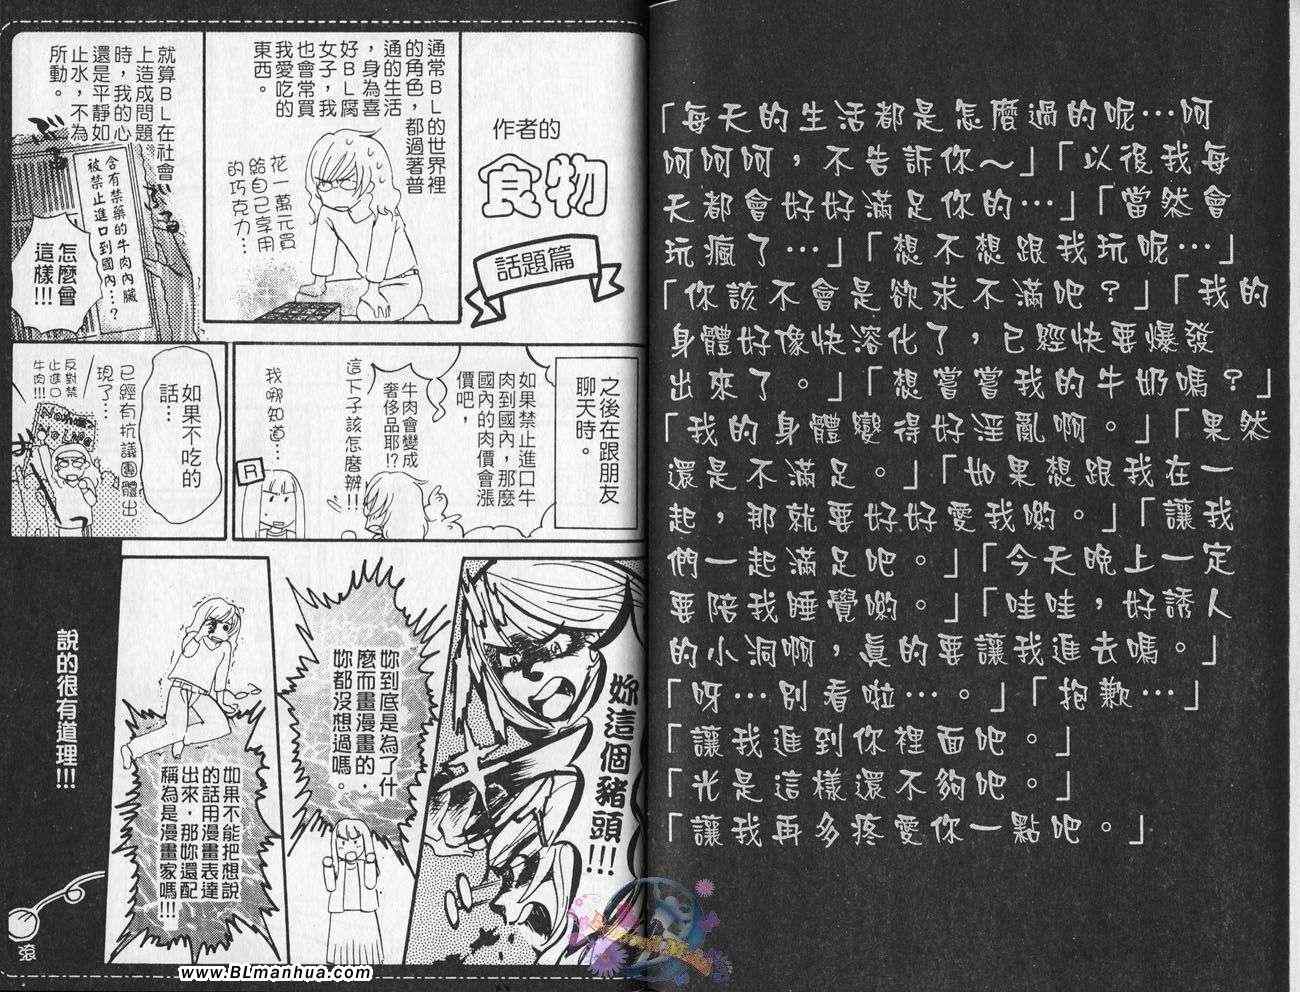 「每天的生活都是怎麼過的呢…呵
呵呵呵，不告訴你～」「以後我每
天都會好好滿足你的…」「當然會
玩瘋了…」「想不想跟我玩呢…」
「你該不會是欲求不滿吧？」「我的
身體好像快溶化了，已經快要爆發
出來了。」「想嘗嘗我的牛奶嗎？」
「我的身體變得好淫亂啊。」「果然
還是不滿足。」「如果想跟我在一
起，那就要好好愛我喲。」「讓我
們一起滿足吧。」「今天晚上一定
要陪我睡覺喲。」「哇哇，好誘人
的小洞啊，真的要讓我進去嗎。」
「呀…別看啦…。」「抱歉…」
「讓我進到你裡面吧。」
「光是這樣還不夠吧。」
「讓我再多疼愛你一點吧。」
作者的
食物
話題篇
通常BL的世界裡
的角色，都過著普
通的生活
，身為喜
好BL腐
女子，我
也會常買
我愛吃的
東西。
花一萬元買
給自己享用
的巧克力…
就算BL在社會
上造成問題
時，我的心
還是平靜如
止水，不為
所動。
含有禁藥的牛肉內臟
被禁止進口到國內…？
怎麼會
這樣!!!
之後在跟朋友
聊天時。
如果禁止進口牛
肉到國內，那麼
國內的肉價會漲
價吧，
牛肉會變成
奢侈品耶!?
這下子該怎麼辦!!
我哪知道…
R
如果不吃的
話…
已經有抗議團體出
現了…
反對禁
止進口
牛肉!!!
妳這個豬頭!!!
妳到底是為了什
麼而畫漫畫的，
妳都沒想過嗎。
如果不能把想說
的話用漫畫表達
出來，那妳還配
稱為是漫畫家嗎!!!
說的很有道理!!!
滾
www.BLmanhua.com